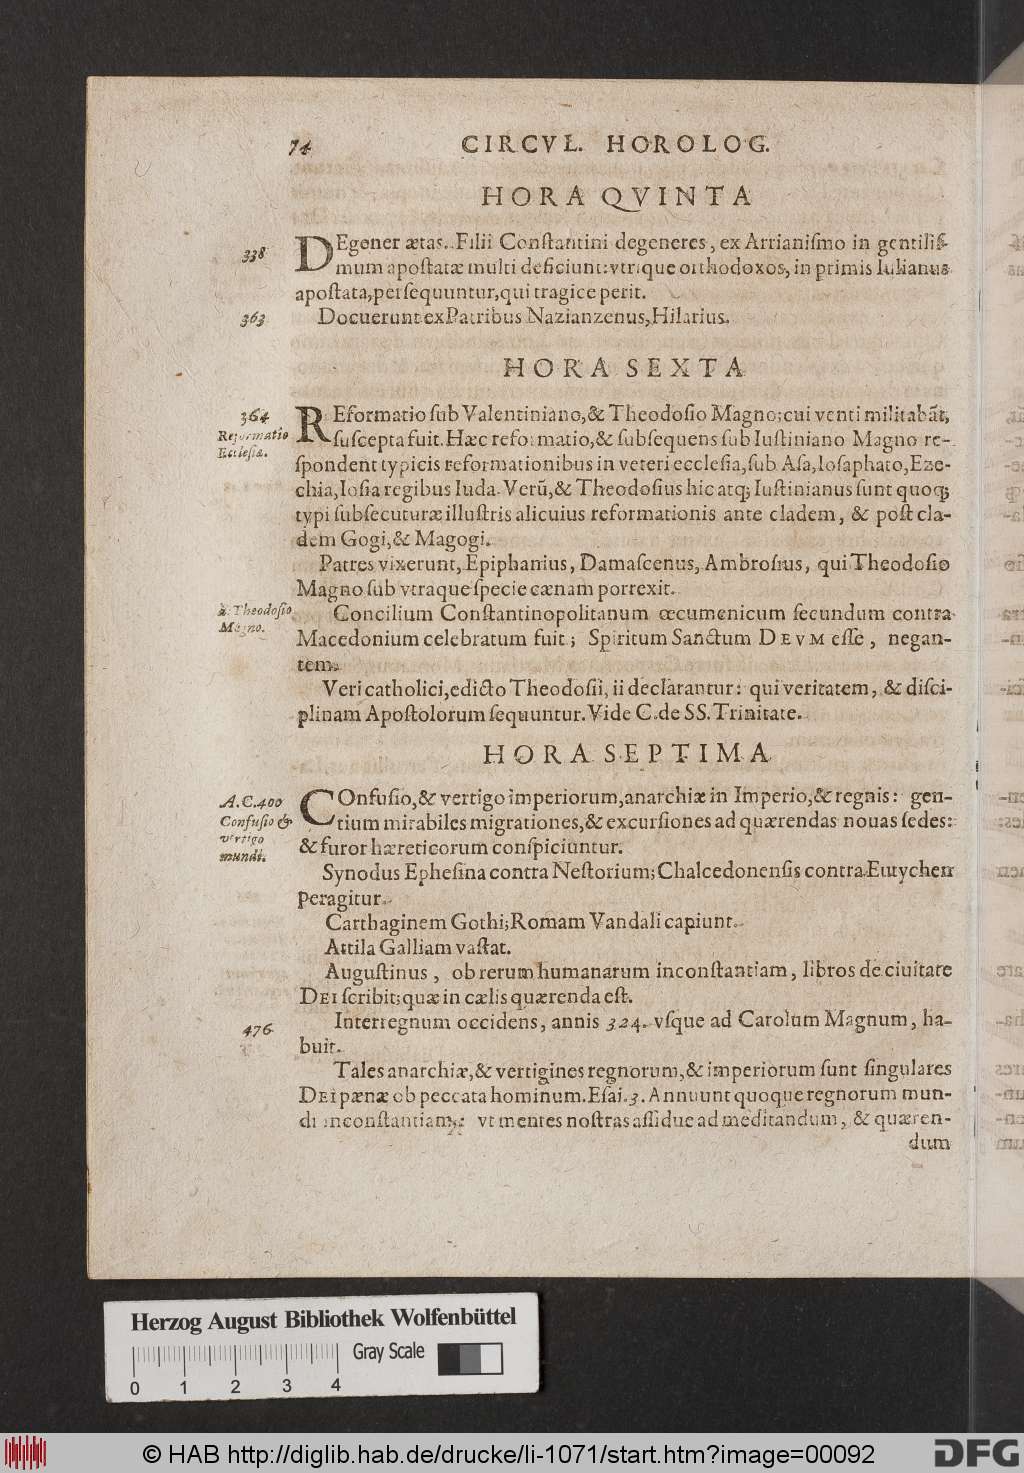 74 CIRCVL. HOROLOG.
HORA QVINTA
338
DEgener ætas. Filii Conſtantini degeneres, ex Arrianiſmo in gentiliſ-
mum apoſtatæ multi deficiunt: vtrique orthodoxos, in primis Iulianus
apoſtata, perſequuntur, qui tragice perit.
363
Docuerunt ex Patribus Nazianzenus, Hilarius.
HORA SEXTA
364
Reformatio
Eccleſiæ.
REformatio ſub Valentiniano, & Theodoſio Magno; cui venti militabāt,
ſuſcepta fuit. Hæc reformatio, & ſubſequens ſub Iuſtiniano Magno re-
ſpondent typicis reformationibus in veteri eccleſia, ſub Aſa, Ioſaphato, Eze-
chia, Ioſia regibus Iuda. Verū, & Theodoſius hic atq; Iuſtinianus ſunt quoq;
typi ſubſecuturæ illuſtris alicuius reformationis ante cladem, & poſt cla-
dem Gogi, & Magogi.
Patres vixerunt, Epiphanius, Damaſcenus, Ambroſius, qui Theodoſio
Magno ſub vtraque ſpecie cænam porrexit.
à Theodoſio
Magno.
Concilium Conſtantinopolitanum œcumenicum ſecundum contra
Macedonium celebratum fuit; Spiritum Sanctum DEVM eſſe, negan-
tem.
Veri catholici, edicto Theodoſii, ii declarantur: qui veritatem, & diſci-
plinam Apoſtolorum ſequuntur. Vide C. de SS. Trinitate.
HORA SEPTIMA
A. C. 400
Confuſio &
vertigo
mundi.
COnfuſio, & vertigo imperiorum, anarchiæ in Imperio, & regnis: gen-
tium mirabiles migrationes, & excurſiones ad quærendas nouas ſedes:
& furor hæreticorum conſpiciuntur.
Synodus Epheſina contra Neſtorium; Chalcedonenſis contra Eutychen
peragitur.
Carthaginem Gothi; Romam Vandali capiunt.
Attila Galliam vaſtat.
Auguſtinus, ob rerum humanarum inconſtantiam, libros de ciuitate
DEI ſcribit: quæ in cælis quærenda eſt.
476
Interregnum occidens, annis 324. vſque ad Carolum Magnum, ha-
buit.
Tales anarchiæ, & vertigines regnorum, & imperiorum ſunt ſingulares
DEI pænæ ob peccata hominum. Eſai. 3. Annuunt quoque regnorum mun-
di inconſtantiam: vt mentes noſtras aſſidue ad meditandum, & quæren-
dum
Herzog August Bibliothek Wolfenbüttel
Gray Scale
0 1 2 3 4
© HAB http://diglib.hab.de/drucke/li-1071/start.htm?image=00092
DFG